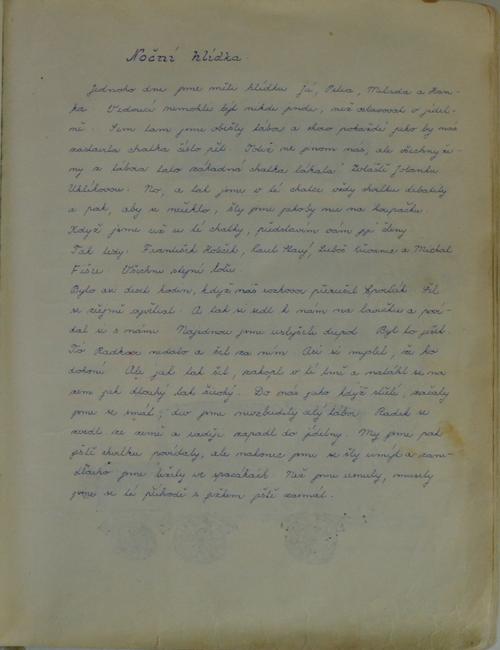 Noční hlídka
Jednoho dne jsme měli hlídku já, Petra, Milada a Han-
ka. Vedoucí nemohli být nikde jinde, než oslavovat v jídel-
ně. Sem tam jsme oběhly tábor a skoro pokaždé jako by nás
zastavila chatka číslo pět. Totiž ne jenom nás, ale všechny že-
ny z tábora tato záhadná chatka lákala. Zvláště Jolanku
Uklikovou. No, a tak jsme v té chatce vždy chvilku debatily
a pak, aby se neřeklo, šly jsme jakoby nic na houpačku.
Když jsme už u té chatky, představím vám její členy.
Tak tedy: František Holček, Luboš a Michal
Fišer. Všichni stejní
Bylo asi deset hodin, když náš rozhovor přerušil Športák. Šel
se zřejmě vyvětrat. A tak si sedl k nám na lavičku a poví-
dal si s námi. Najednou jsme uslyšeli dupot. Byl to ježek.
To Radkovi nedalo a šel za ním. Asi si myslel, že ho
dohoní. Ale jak tak šel, zakopl v té tmě a natáhl se na
zem jak dlouhý tak široký. Do nás jako když střelí, začaly
jsme se smát, div jsme nevzbudily celý tábor. Radek se
zvedl ze země a raději zapadl do jídelny. My jsme pak
ještě chvilku povídaly, ale nakonec jsme se šly umýt a zane-
dlouho jsme ležely ve spacácích. Než jsme usnuly, musely
jsme se té příhodě s ježkem ještě zasmát.